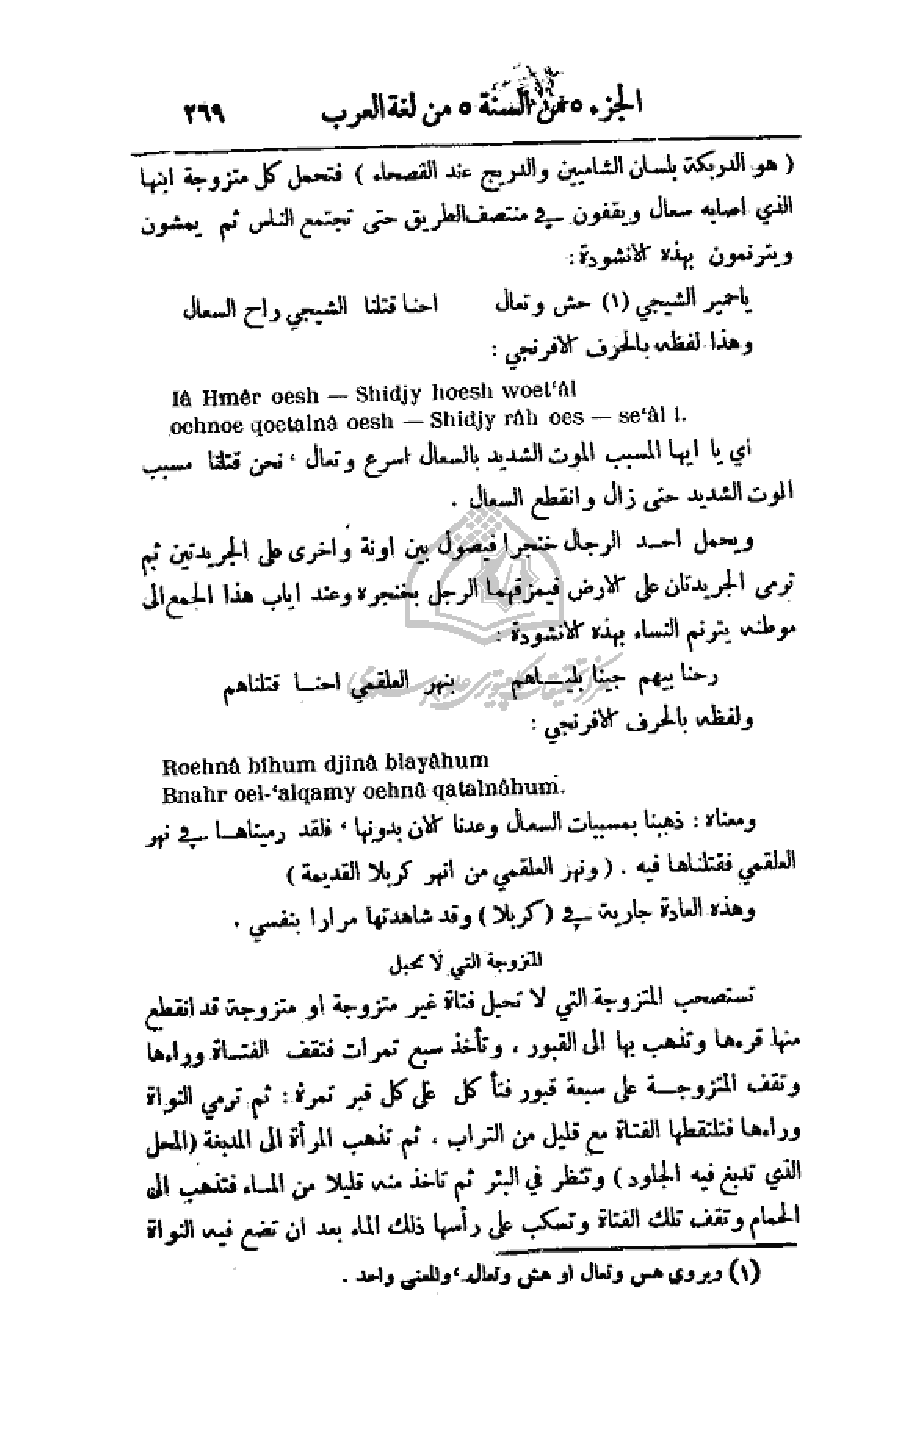 الجزء ٥ من السنة ٥ من لغة العرب ٣٦٩
( هو الدربكة بلسان الشاميين والدريج عند الفصحاء ) فتحمل كل متزوجة ابنها
الذي اصابه سعال ويقفون في منتصف الطريق حتى تجتمع الناس ثم يمشون
ويترنمون بهذه الانشودة :
ياحمير الشيجي (١) حش وتعال احنا قتلنا الشيجي راح السعال
وهذا لفظه بالحرف الافرنجي :
Iâ Hmêr oesh — Shidjy hoesh woet'âl
oehnoe qoetalnâ oesh — Shidjy râh oes — se'âl l.
أي يا ايها المسبب الموت الشديد بالسعال اسرع وتعال ، نحن قتلنا مسبب
الموت الشديد حتى زال وانقطع السعال .
ويحمل احد الرجال خنجرا فيصول بين اونة واخرى على الجريدتين ثم
ترمى الجريدتان على الارض فيمزقهما الرجل بخنجره وعند اياب هذا الجمع الى
موطنه يترنم النساء بهذه الانشودة :
رحنا بيهم جينا بليـاهم بنهر العلقمي احنا قتلناهم
ولفظه بالحرف الافرنجي :
Roehnâ bîhum djinâ blayâhum
Bnahr oel-'alqamy oehnâ qatalnâhum.
ومعناه : ذهبنا بمسببات السعال وعدنا الان بدونها ، فلقد رميناها في نهر
العلقمي فقتلناها فيه . ( ونهر العلقمي من انهر كربلا القديمة )
وهذه العادة جارية في ( كربلا ) وقد شاهدتها مرارا بنفسي .
المتزوجة التي لا تحبل
تستصحب المتزوجة التي لا تحبل فتاة غير متزوجة او متزوجة قد انقطع
منها قرءها وتذهب بها الى القبور . وتأخذ سبع تمرات فتقف الفتاة وراءها
وتقف المتزوجـة على سبعة قبور فتأكل على كل قبر تمرة : ثم ترمي النواة
وراءها فتلتقطها الفتاة مع قليل من التراب . ثم تذهب المرأة الى المدبغة (المحل
الذي تدبغ فيه الجلود ) وتنظر في البئر ثم تاخذ منه قليلا من الماء فتذهب الى
الحمام وتقف تلك الفتاة وتسكب على رأسها ذلك الماء بعد ان تضع فيه النواة
(١) ويروى هس وتعال او هش وتعال ، والمعنى واحد .